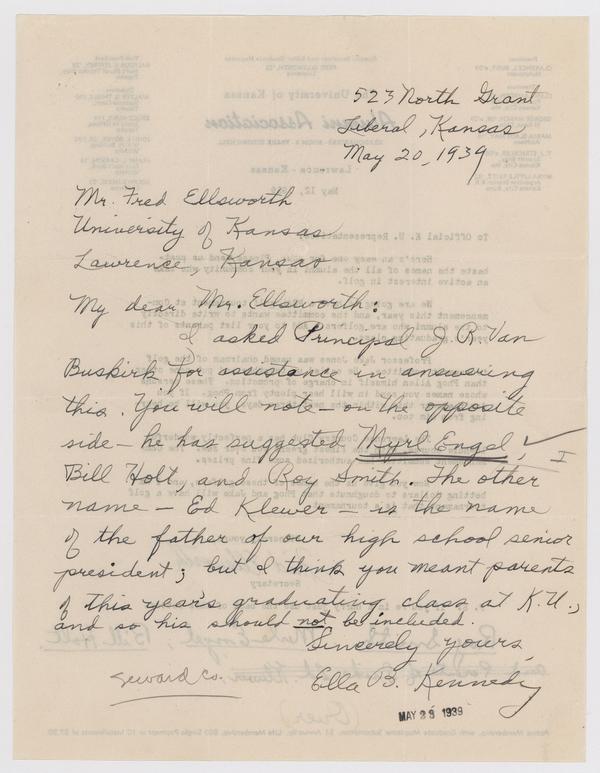 523 North Grant
Liberal, Kansas
May 20, 1939
Mr. Fred Ellsworth
University of Kansas
Lawrence, Kansas
My dear Mr. Ellsworth:
I asked Principal J. R. Van
Buskirk for assistance in answering
this. You will note – on the opposite
side – he has suggested Myrl Engel,
Bill Holt, and Roy Smith. The other
name – Ed Klewer – is the name
of the father of our high school senior
president; but I think you meant parents
of this year's graduating class at K.U.,
and so his should not be included.
Sincerely yours,
Seward Co.
Ella B. Kennedy
MAY 23 1939